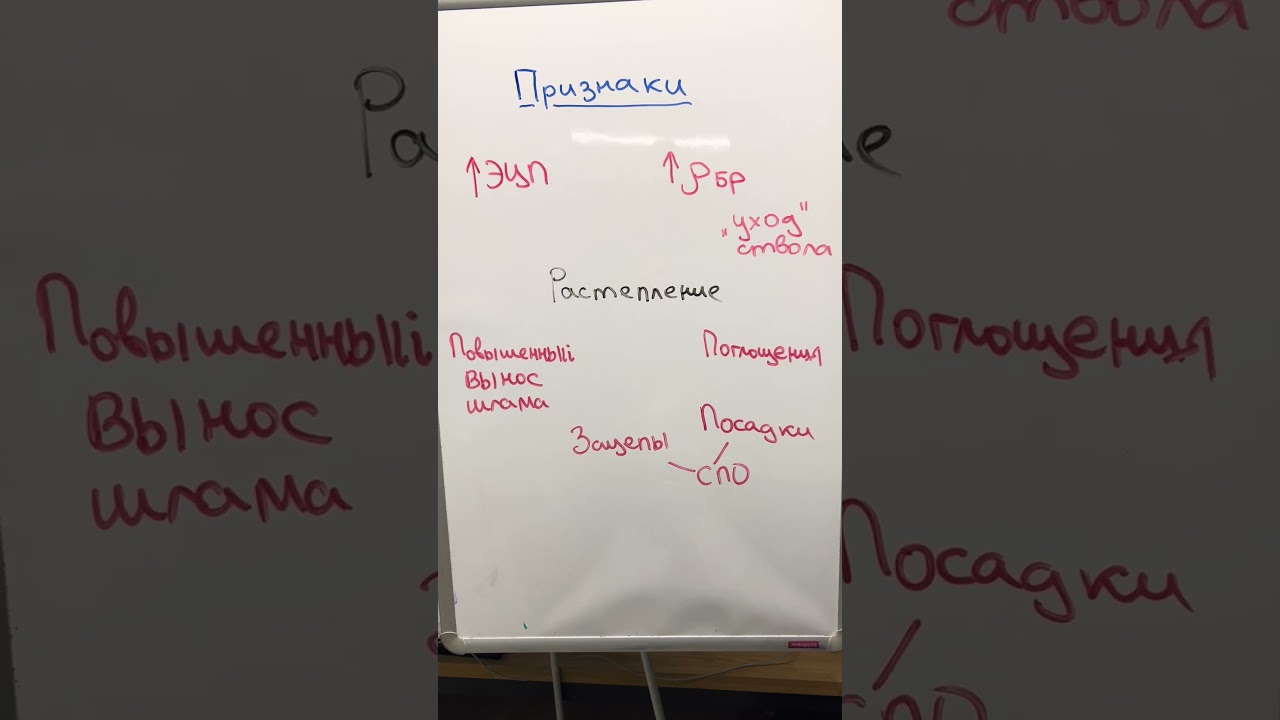 Признаки
↑ЭЦП
↑ρбр
"уход"
ствола
Растепление
Повышенный
вынос
шлама
Поглощения
Зацепы
Посадки
СПО